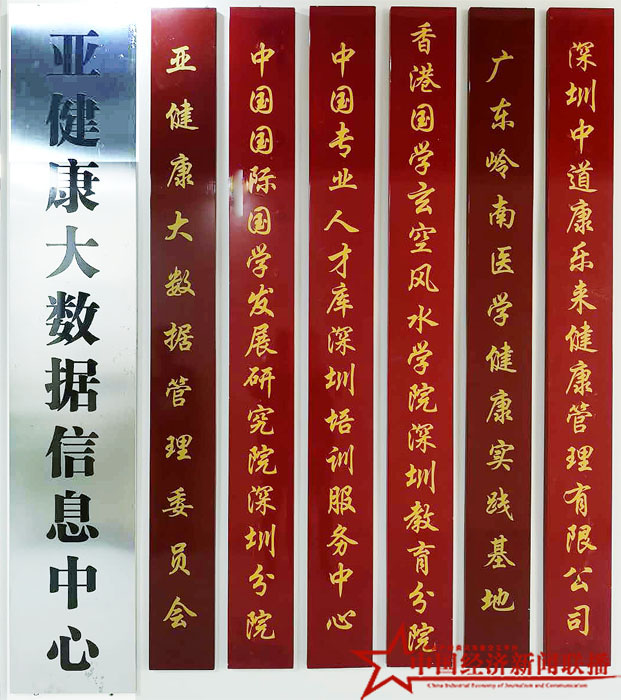 亚健康大数据信息中心
亚健康大数据管理委员会
中国国际国学发展研究院深圳分院
中国专业人才库深圳培训服务中心
香港国学玄空风水学院深圳教育分院
广东岭南医学健康实践基地
深圳中道康乐来健康管理有限公司
中国经济新闻联播
China Industrial Economy of Journalism and Communication